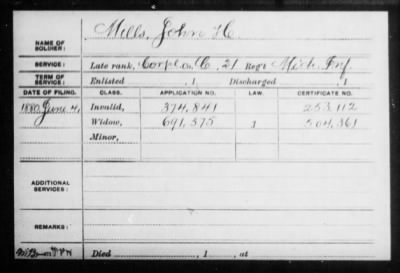 NAME OF SOLDIER: Mills, John H.
SERVICE: Late rank, Corpl. Co. 21 Reg't Mich. Inf.
TERM OF SERVICE: Enlisted , 1 Discharged , 1
DATE OF FILING. CLASS. APPLICATION NO. LAW. CERTIFICATE NO.
1880 June 4, Invalid, 374,841 253,112
Widow, 691,575 504,361
Minor,
ADDITIONAL SERVICES:
REMARKS:
Died , 1 , at